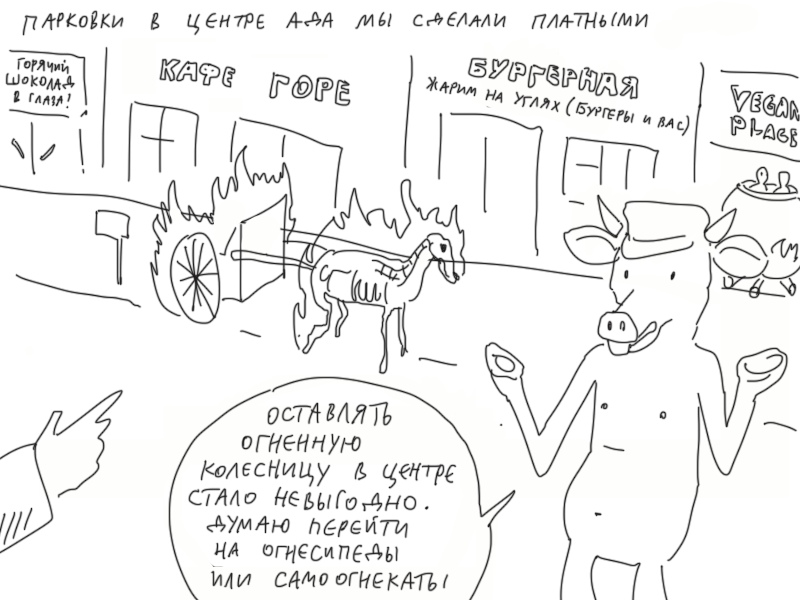 ПАРКОВКИ В ЦЕНТРЕ АДА МЫ СДЕЛАЛИ ПЛАТНЫМИ
ГОРЯЧИЙ
ШОКОЛАД
В ГЛАЗА!
КАФЕ ГОРЕ
БУРГЕРНАЯ
ЖАРИМ НА УГЛЯХ (БУРГЕРЫ И ВАС)
VEGAN
PLACE
ОСТАВЛЯТЬ
ОГНЕННУЮ
КОЛЕСНИЦУ В ЦЕНТРЕ
СТАЛО НЕВЫГОДНО.
ДУМАЮ ПЕРЕЙТИ
НА ОГНЕСИПЕДЫ
ИЛИ САМООГНЕКАТЫ